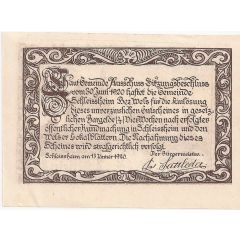 Laut Gemeinde Ausschuss Sitzungsbeschluss
vom 30 Juni 1920 haftet die Gemeinde
Schleissheim Bez. Wels für die Einlösung
dieses unverzinslichen Gutscheines in gesetz-
lichem Bargelde bis vier Wochen nach erfolgter
öffentlicher Kundmachung in Schleissheim und den
Welser Lokalblättern. Die Nachahmung dieses
Scheines wird strafgerichtlich verfolgt.
Schleissheim am 1920.
Der Bürgermeister: